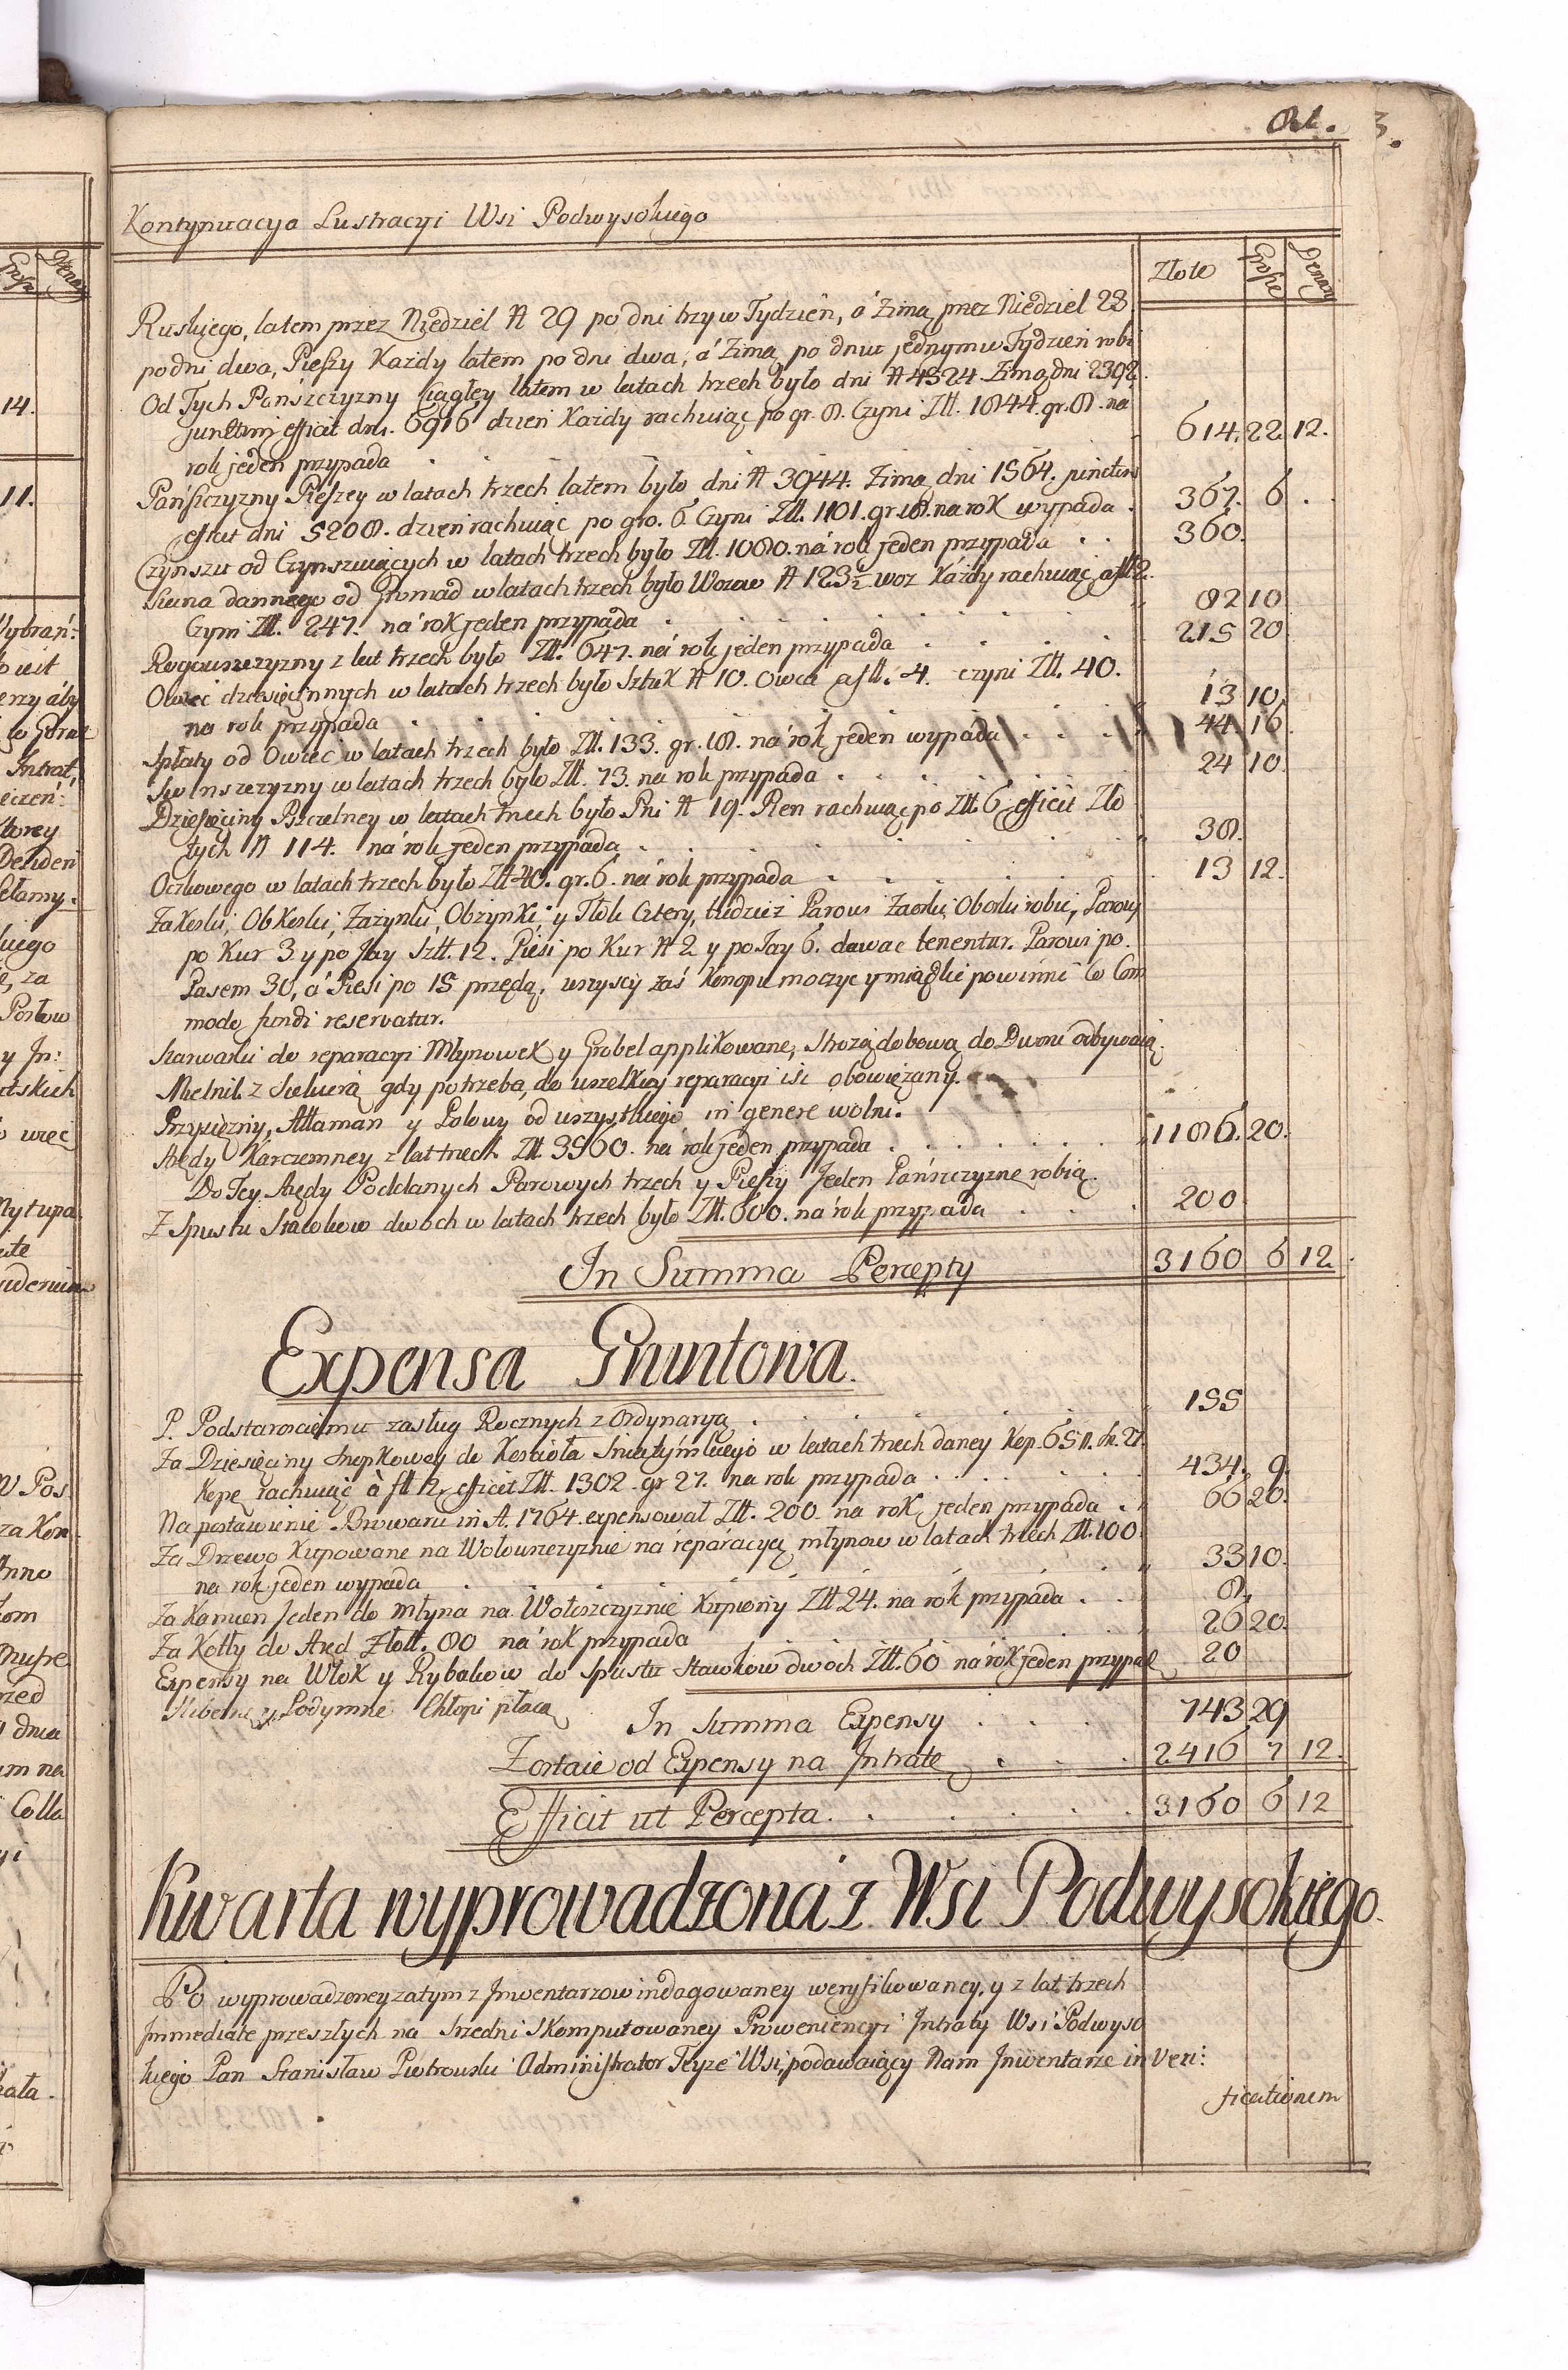 81.
Kontynuacya Lustracyi Wsi Podwysokiego
Złote Grosze Denary
Ruskiego, latem przez Niedziel N 29 po dni trzy w Tydzień, á Zimą przez Niedziel 23
po dni dwa, Pieszy Kazdy latem po dni dwa, á Zimą po dniu jednymu Tydzień robi
Od Tych Pańszczyzny Ciągłey latem w latach trzech było dni N 4524 Zimą dni 2392.
junctim efficit dni. 6916 dzień Kazdy rachuiąc po gr. 8. Czyni Złł. 1844. gr. 8. na
rok jeden przypada 614. 22 12.
Pańszczyzny Pieszey w latach trzech latem było dni N 3944. Zimą dni 1564. junctim
efficit dni 5208. dzień rachuiąc po gro. 6 Czyni Złł. 1101. gr. 18. na rok wypada 367. 6.
Czynszu od Czynszuiących w latach trzech było Złł. 1080. ná rok jeden przypada 360.
Siana dannego od Gromad w latach trzech było Wozow N 123½ woz Każdy rachuiąc a fl 2.
Czyni Złł. 247. ná rok jeden przypada 82 10
Rogowszczyzny z lat trzech było Złł. 647. ná rok jeden przypada 215 20
Owiec dziesięcinnych w latach trzech było Sztuk N 10. Owca a fl. 4. czyni Złł. 40.
na rok przypada 13 10.
Spłaty od Owiec w latach trzech było Złł. 133. gr. 18. ná rok jeden wypada 44 16
było Złł. 73. na rok przypada 24 10.
Dziesięciny Pszczelney w latach trzech było Pni N 19. Pień rachuiąc po Złł. 6 efficit Zło
tych N 114. ná rok jeden przypada 38.
Oczkowego w latach trzech było Złł 40. gr. 6. ná rok przypada 13 12.
Zakoski, Obkoski, Zażynki, Obżynki y Tłok Cztery, tudzież Parowi Zaorki Oborki robić, Parowy
po Kur 3 y po Jay Szt. 12. Pieśi po Kur N 2 y po Jay 6. dawac tenentur. Parowi po.
Pasem 30, á Pieśi po 15 przędą, wszyscy zaś Konopie moczyc y miądlić powinni Co Com
modo fundi reservatur.
Szarwarki do reparacyi Młynowek y Grobel applikowane, Strozą dobową do Dworu odbywaią.
Mielnik z Siekierą gdy potrzeba, do wszelkiey reparacyi iśc obowiązany.
Przysięzny, Attaman y Polowy od wszystkiego in genere wolni.
Arędy Karczemney z lat trzech Złł. 3560. na rok jeden przypada 1186. 20.
Do Tey Arędy Poddanych Parowych trzech y Pieszy Jeden Pańszczyznę robią.
Z Spustu Stawkow dwoch w latach trzech było Złł. 600. ná rok przypada 200
In Summa Percepty 3160 6 12.
Expensa Gruntowa.
P. Podstarosciemu zasług Rocznych z Ordynaryą 155
Za Dziesięciny Snopkowey do Kościoła Sniatyńskiego w latach trzech daney Kop. 651.
Kopę rachuiąc à fl 2, efficit Złł. 1302. gr 27. na rok przypada 434. 9.
Na postawienie Browaru in A. 1764. expensował Złł. 200. na rok jeden przypada 66 20.
Za Drzewo Kupowane na Wołoszczyznie ná reparacyą młynow w latach trzech Złł. 100
na rok jeden wypada 33 10.
Za Kamien Jeden do młyna na Wołoszczyznie Kupiony Złł 24. na rok przypada 8.
Za Kotły do Aręd Złott. 80 ná rok przypada 26 20.
Expensy na Włok y Rybakow do Spustu Stawkow dwoch Złł. 60 ná rok jeden przypad 20
Hiberny y Podymne Chłopi płacą
In Summa Expensy 743 29
Zostaie od Expensy na Intratę 2416 7 12.
Efficit ut Percepta 3160 6 12
Kwarta wyprowadzoná z Wsi Podwysokiego.
Po wyprowadzoney zatym z Inwentarzow indagowaney weryfikowaney, y z lat trzech
Immediate przeszłych na Srzedni Skomputowaney Proweniencyi Intraty Wsi Podwyso
kiego Pan Stanisław Piotrowski Administrator Teyze Wsi, podawaiący Nam Inwentarze in Veri:
ficationem